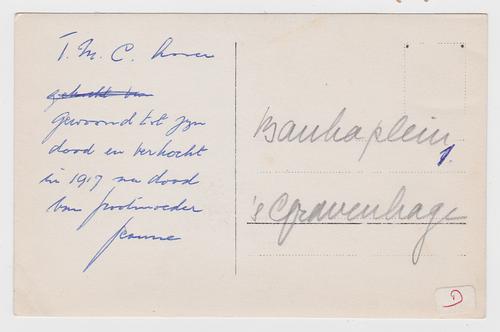 T. M. C.
gekocht van
Gewoond tot zijn
dood en verkocht
in 1917 na dood
van grootmoeder
Jeanne
Bankaplein
1.
's Gravenhage